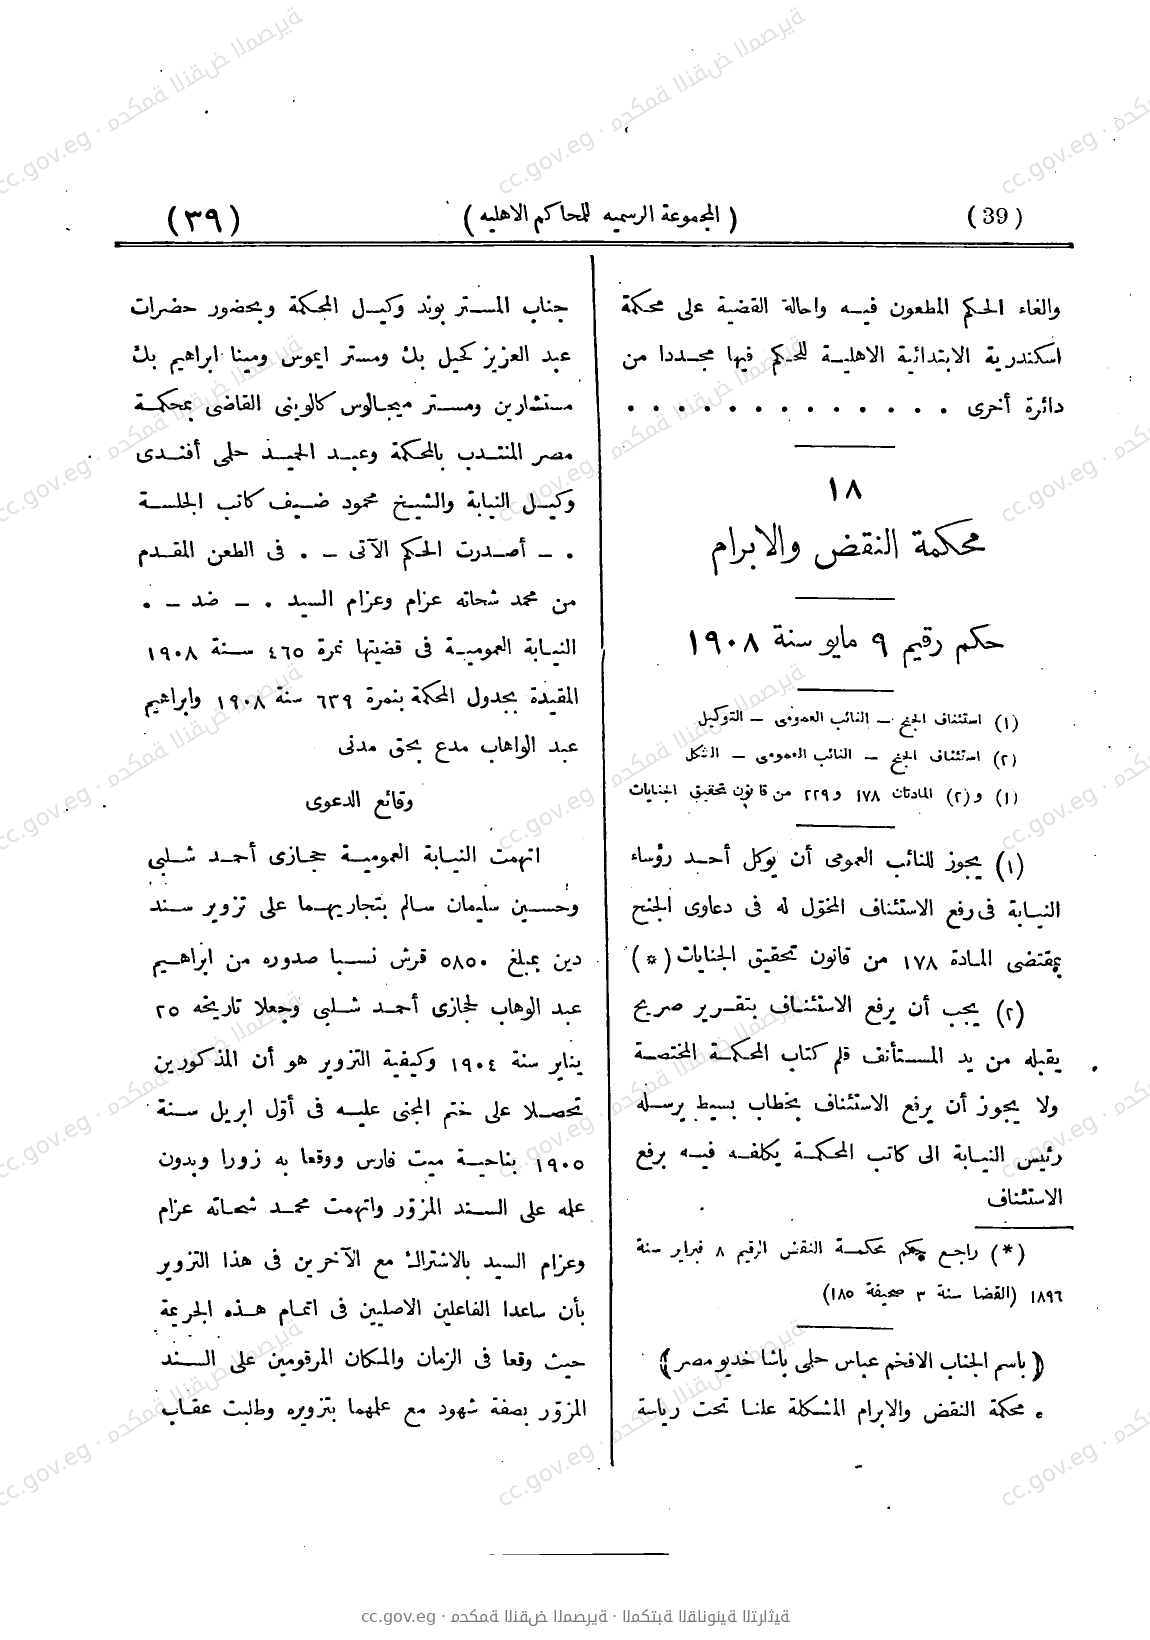 (٣٩) (المجموعة الرسميه للمحاكم الاهليه) (39)
والغاء الحكم المطعون فيه واحالة القضية على محكمة
اسكندرية الابتدائية الاهلية للحكم فيها مجددا من
دائرة أخرى . . . . . . . . . . . . .
١٨
محكمة النقض والابرام
حكم رقيم ٩ مايو سنة ١٩٠٨
(١) استئناف الجنح – النائب العمومى – التوكيل
(٢) استئناف الجنح – النائب العمومى – الشكل
(١) و(٢) المادتان ١٧٨ و٢٢٩ من قانون تحقيق الجنايات
(١) يجوز للنائب العمومى أن يوكل أحد رؤساء
النيابة فى رفع الاستئناف المخوّل له فى دعاوى الجنح
بمقتضى المادة ١٧٨ من قانون تحقيق الجنايات (*)
(٢) يجب أن يرفع الاستئناف بتقرير صريح
يقبله من يد المستأنف قلم كتاب المحكمة المختصة
ولا يجوز أن يرفع الاستئناف بخطاب بسيط يرسله
رئيس النيابة الى كاتب المحكمة يكلفه فيه برفع
الاستئناف
(*) راجع حكم محكمة النقض الرقيم ٨ فبراير سنة
١٨٩٦ (القضا سنة ٣ صحيفة ١٨٥)
(باسم الجناب الافخم عباس حلمى باشا خديو مصر)
محكمة النقض والابرام المشكلة علنا تحت رياسة
جناب المستر بوند وكيل المحكمة وبحضور حضرات
عبد العزيز كحيل بك ومستر ايموس ومينا ابراهيم بك
مستشارين ومستر ميجالوس كالوينى القاضى بمحكمة
مصر المنتدب بالمحكمة وعبد الحميد حلمى أفندى
وكيل النيابة والشيخ محمود ضيف كاتب الجلسة
. – أصدرت الحكم الآتى – . فى الطعن المقدم
من محمد شحاته عزام وعزام السيد . – ضد – .
النيابة العمومية فى قضيتها نمرة ٤٦٥ سنة ١٩٠٨
المقيدة بجدول المحكمة بنمرة ٦٣٩ سنة ١٩٠٨ وابراهيم
عبد الواهاب مدع بحق مدنى
وقائع الدعوى
اتهمت النيابة العمومية حجازى أحمد شلبى
وحسين سليمان سالم بتجاريهما على تزوير سند
دين بمبلغ ٥٨٥٠ قرش نسبا صدوره من ابراهيم
عبد الوهاب لحجازى أحمد شلبى وجعلا تاريخه ٢٥
يناير سنة ١٩٠٤ وكيفية التزوير هو أن المذكورين
تحصلا على ختم المجنى عليه فى أوّل ابريل سنة
١٩٠٥ بناحية ميت فارس ووقعا به زورا وبدون
علمه على السند المزوّر واتهمت محمد شحاته عزام
وعزام السيد بالاشتراك مع الآخرين فى هذا التزوير
بأن ساعدا الفاعلين الاصليين فى اتمام هذه الجريمة
حيث وقعا فى الزمان والمكان المرقومين على السند
المزوّر بصفة شهود مع علمهما بتزويره وطلبت عقاب
cc.gov.eg · محكمة النقض المصرية · المكتبة القانونية التراثية